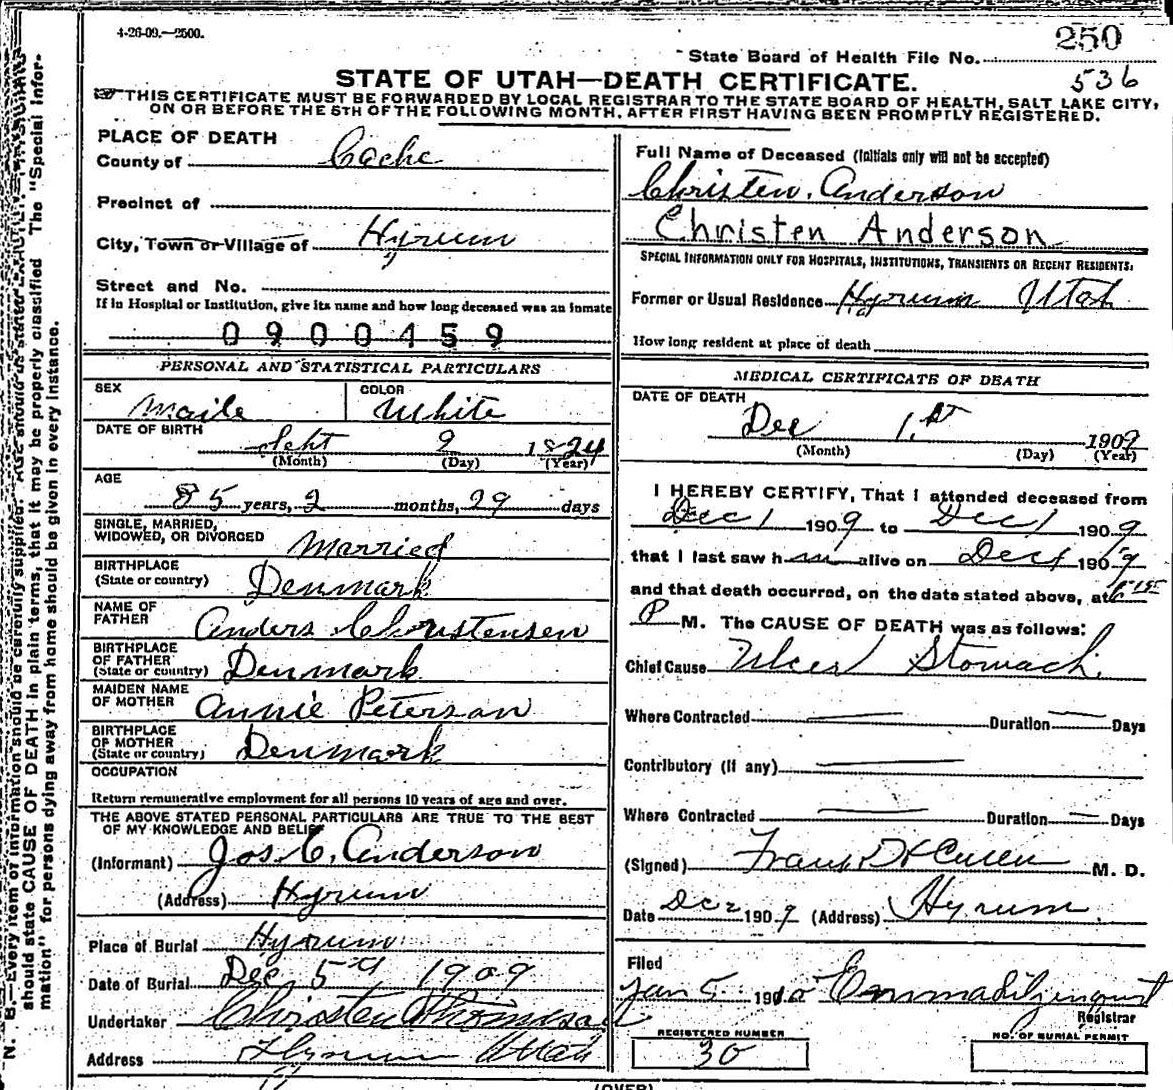 4-26-09.—2500.
250
State Board of Health File No.
536
STATE OF UTAH—DEATH CERTIFICATE.
THIS CERTIFICATE MUST BE FORWARDED BY LOCAL REGISTRAR TO THE STATE BOARD OF HEALTH, SALT LAKE CITY,
ON OR BEFORE THE 5TH OF THE FOLLOWING MONTH, AFTER FIRST HAVING BEEN PROMPTLY REGISTERED.
PLACE OF DEATH
County of Cache
Precinct of
City, Town or Village of Hyrum
Street and No.
If in Hospital or Institution, give its name and how long deceased was an inmate
0900459
PERSONAL AND STATISTICAL PARTICULARS
SEX
Maile
COLOR
White
DATE OF BIRTH
Sept 9 1824
(Month) (Day) (Year)
AGE
85 years, 2 months, 29 days
SINGLE, MARRIED,
WIDOWED, OR DIVORCED Married
BIRTHPLACE
(State or country) Denmark
NAME OF
FATHER Anders Christensen
BIRTHPLACE
OF FATHER
(State or country) Denmark
MAIDEN NAME
OF MOTHER Annie Peterson
BIRTHPLACE
OF MOTHER
(State or country) Denmark
OCCUPATION
Return remunerative employment for all persons 10 years of age and over.
THE ABOVE STATED PERSONAL PARTICULARS ARE TRUE TO THE BEST
OF MY KNOWLEDGE AND BELIEF
(Informant) Jos C. Anderson
(Address) Hyrum
Place of Burial Hyrum
Date of Burial Dec 5th 1909
Undertaker Christen Thomson
Address Hyrum Utah
Full Name of Deceased (Initials only will not be accepted)
Christen Anderson
Christen Anderson
SPECIAL INFORMATION ONLY FOR HOSPITALS, INSTITUTIONS, TRANSIENTS OR RECENT RESIDENTS.
Former or Usual Residence Hyrum Utah
How long resident at place of death
MEDICAL CERTIFICATE OF DEATH
DATE OF DEATH
Dec 1st 1909
(Month) (Day) (Year)
I HEREBY CERTIFY, That I attended deceased from
Dec 1 1909 to Dec 1 1909
that I last saw him alive on Dec 1 1909
and that death occurred, on the date stated above, at
P M. The CAUSE OF DEATH was as follows:
Chief Cause Ulcer Stomach
Where Contracted Duration Days
Contributory (if any)
Where Contracted Duration Days
(Signed) M. D.
Date Dec 2 1909 (Address) Hyrum
Filed
Jan 5 1910
Registrar
REGISTERED NUMBER
30
NO. OF BURIAL PERMIT
(OVER)
N. B.—Every item of information should be carefully supplied. AGE should be stated EXACTLY. PHYSICIANS
should state CAUSE OF DEATH in plain terms, that it may be properly classified. The "Special Infor-
mation" for persons dying away from home should be given in every instance.